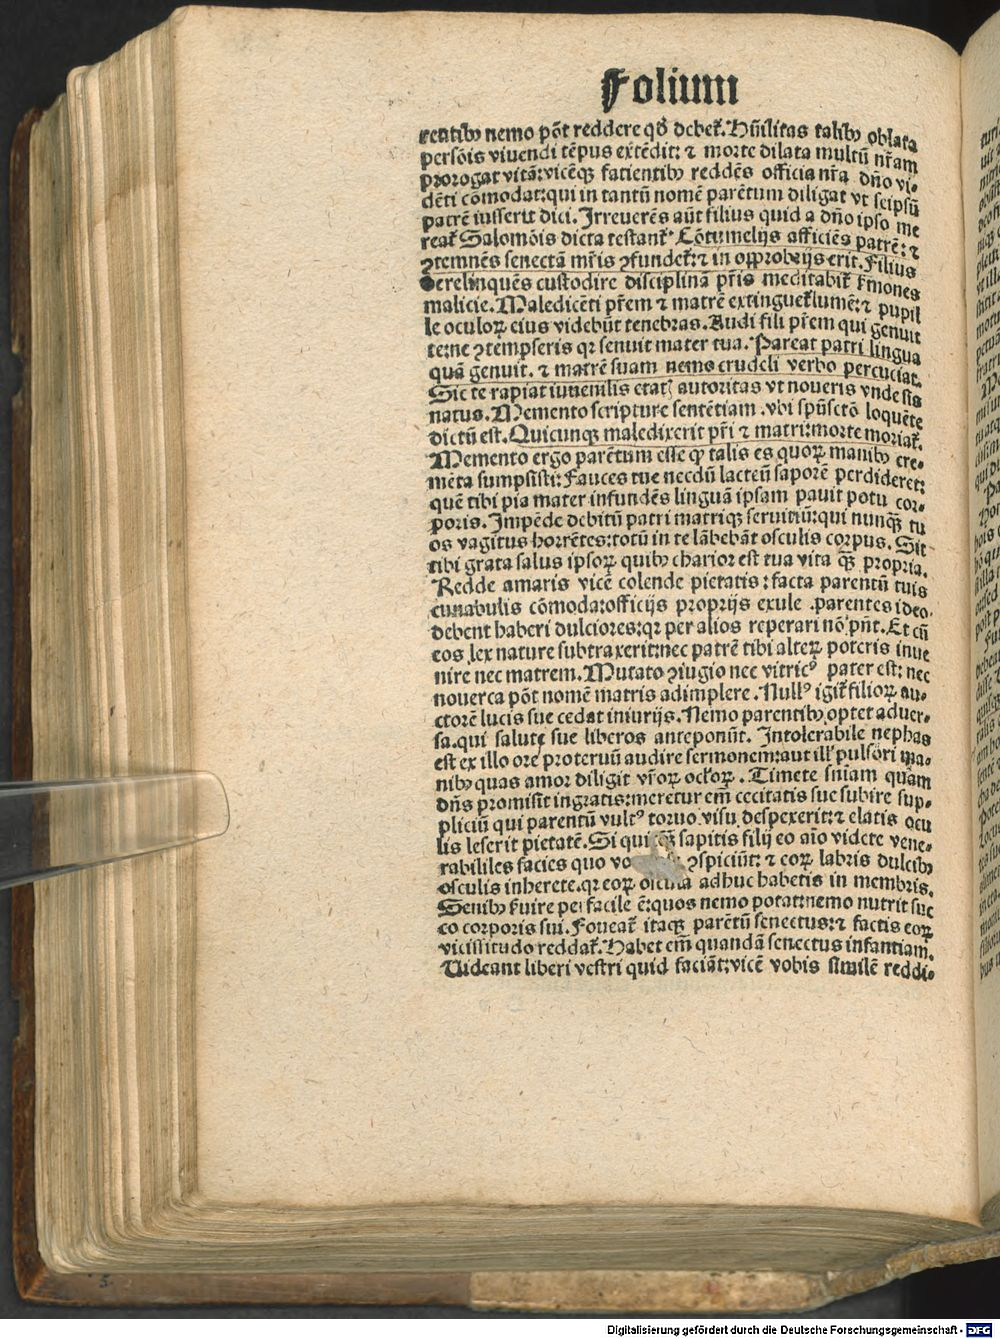 Folium
rentibꝫ nemo põt reddere qđ debeť. Hũilitas talibꝫ oblata
persõis viuendi tẽpus extẽdit: ⁊ morte dilata multũ nr̃am
prorogat vitã: vicẽqꝫ facientibꝫ reddẽs officia nr̃a dño vi⸗
dẽti cõmodat: qui in tantũ nomẽ parẽtum diligat vt seipsũ
patrẽ iusserit dici. Irreuerẽs aũt filius quid a dño ipso me
reať Salomõis dicta testanť Cõtumelijs afficiẽs patrẽ: ⁊
ꝯtemnẽs senectã mr̃is ꝯfundeť: ⁊ in opprobrijs erit. Filius
derelinquẽs custodire disciplinã pr̃is meditabiť s̃mones
malicie. Maledicẽti pr̃em ⁊ matrẽ extingueť lumẽ: ⁊ pupil
le oculoꝝ eius videbũt tenebras. Audi fili pr̃em qui genuit
te: ne ꝯtempseris qꝛ senuit mater tua. Pareat patri lingua
quã genuit. ⁊ matrẽ suam nemo crudeli verbo percuciat.
Sic te rapiat iuuenilis etať autoritas vt noueris vnde sis
natus. Memento scripture sentẽtiam. vbi spũsctõ loquẽte
dictũ est. Quicunqꝫ maledixerit pr̃i ⁊ matri: morte moriať.
Memento ergo parẽtum esse ꝙ talis es quoꝝ manibꝫ cre⸗
mẽta sumpsisti: Fauces tue necdũ lacteũ saporẽ perdideret:
quẽ tibi pia mater infundẽs linguã ipsam pauit potu cor⸗
poris. Impẽde debitũ patri matriqꝫ seruitiũ: qui nunqꝫ̃ tu
os vagitus horrẽtes: totũ in te lãbebãt osculis corpus. Sit
tibi grata salus ipsoꝝ quibꝫ charior est tua vita qꝫ̃ propria.
Redde amaris vicẽ colende pietatis: facta parentũ tuis
cunabulis cõmoda: officijs proprijs exule. parentes ideo
debent haberi dulciores: qꝛ per alios reperari nõ pñt. Et cũ
eos lex nature subtraxerit: nec patrẽ tibi alteꝝ poteris inue
nire nec matrem. Mutato ꝯiugio nec vitricꝰ pater est: nec
nouerca põt nomẽ matris adimplere. Nullꝰ igiť filioꝝ au⸗
ctorẽ lucis sue cedat iniurijs. Nemo parentibꝫ optet aduer⸗
sa. qui salute sue liberos anteponũt. Intolerabile nephas
est ex illo ore proteruũ audire sermonem: aut illꝰ pulsori ma⸗
nibꝫ quas amor diligit vr̃oꝝ ocľoꝝ. Timete sñiam quam
dñs promisit ingratis: meretur em̃ cecitatis sue subire sup⸗
pliciũ qui parentũ vultꝰ toruo visu despexerit: ⁊ elatis ocu
lis leserit pietatẽ. Si sapitis filij eo aĩo videte vene⸗
rabililes facies quo ꝯspiciũt: ⁊ eoꝝ labris dulcibꝫ
osculis inherete. qꝛ eoꝝ adhuc habetis in membris.
Senibꝫ s̃uire facile ẽ: quos nemo potat: nemo nutrit suc
co corporis sui. Foueať itaqꝫ parẽtũ senectus: ⁊ factis eoꝝ
vicissitudo reddať. Habet em̃ quandã senectus infantiam.
Uideant liberi vestri quid faciãt: vicẽ vobis similẽ reddi⸗
5.
Digitalisierung gefördert durch die Deutsche Forschungsgemeinschaft - DFG